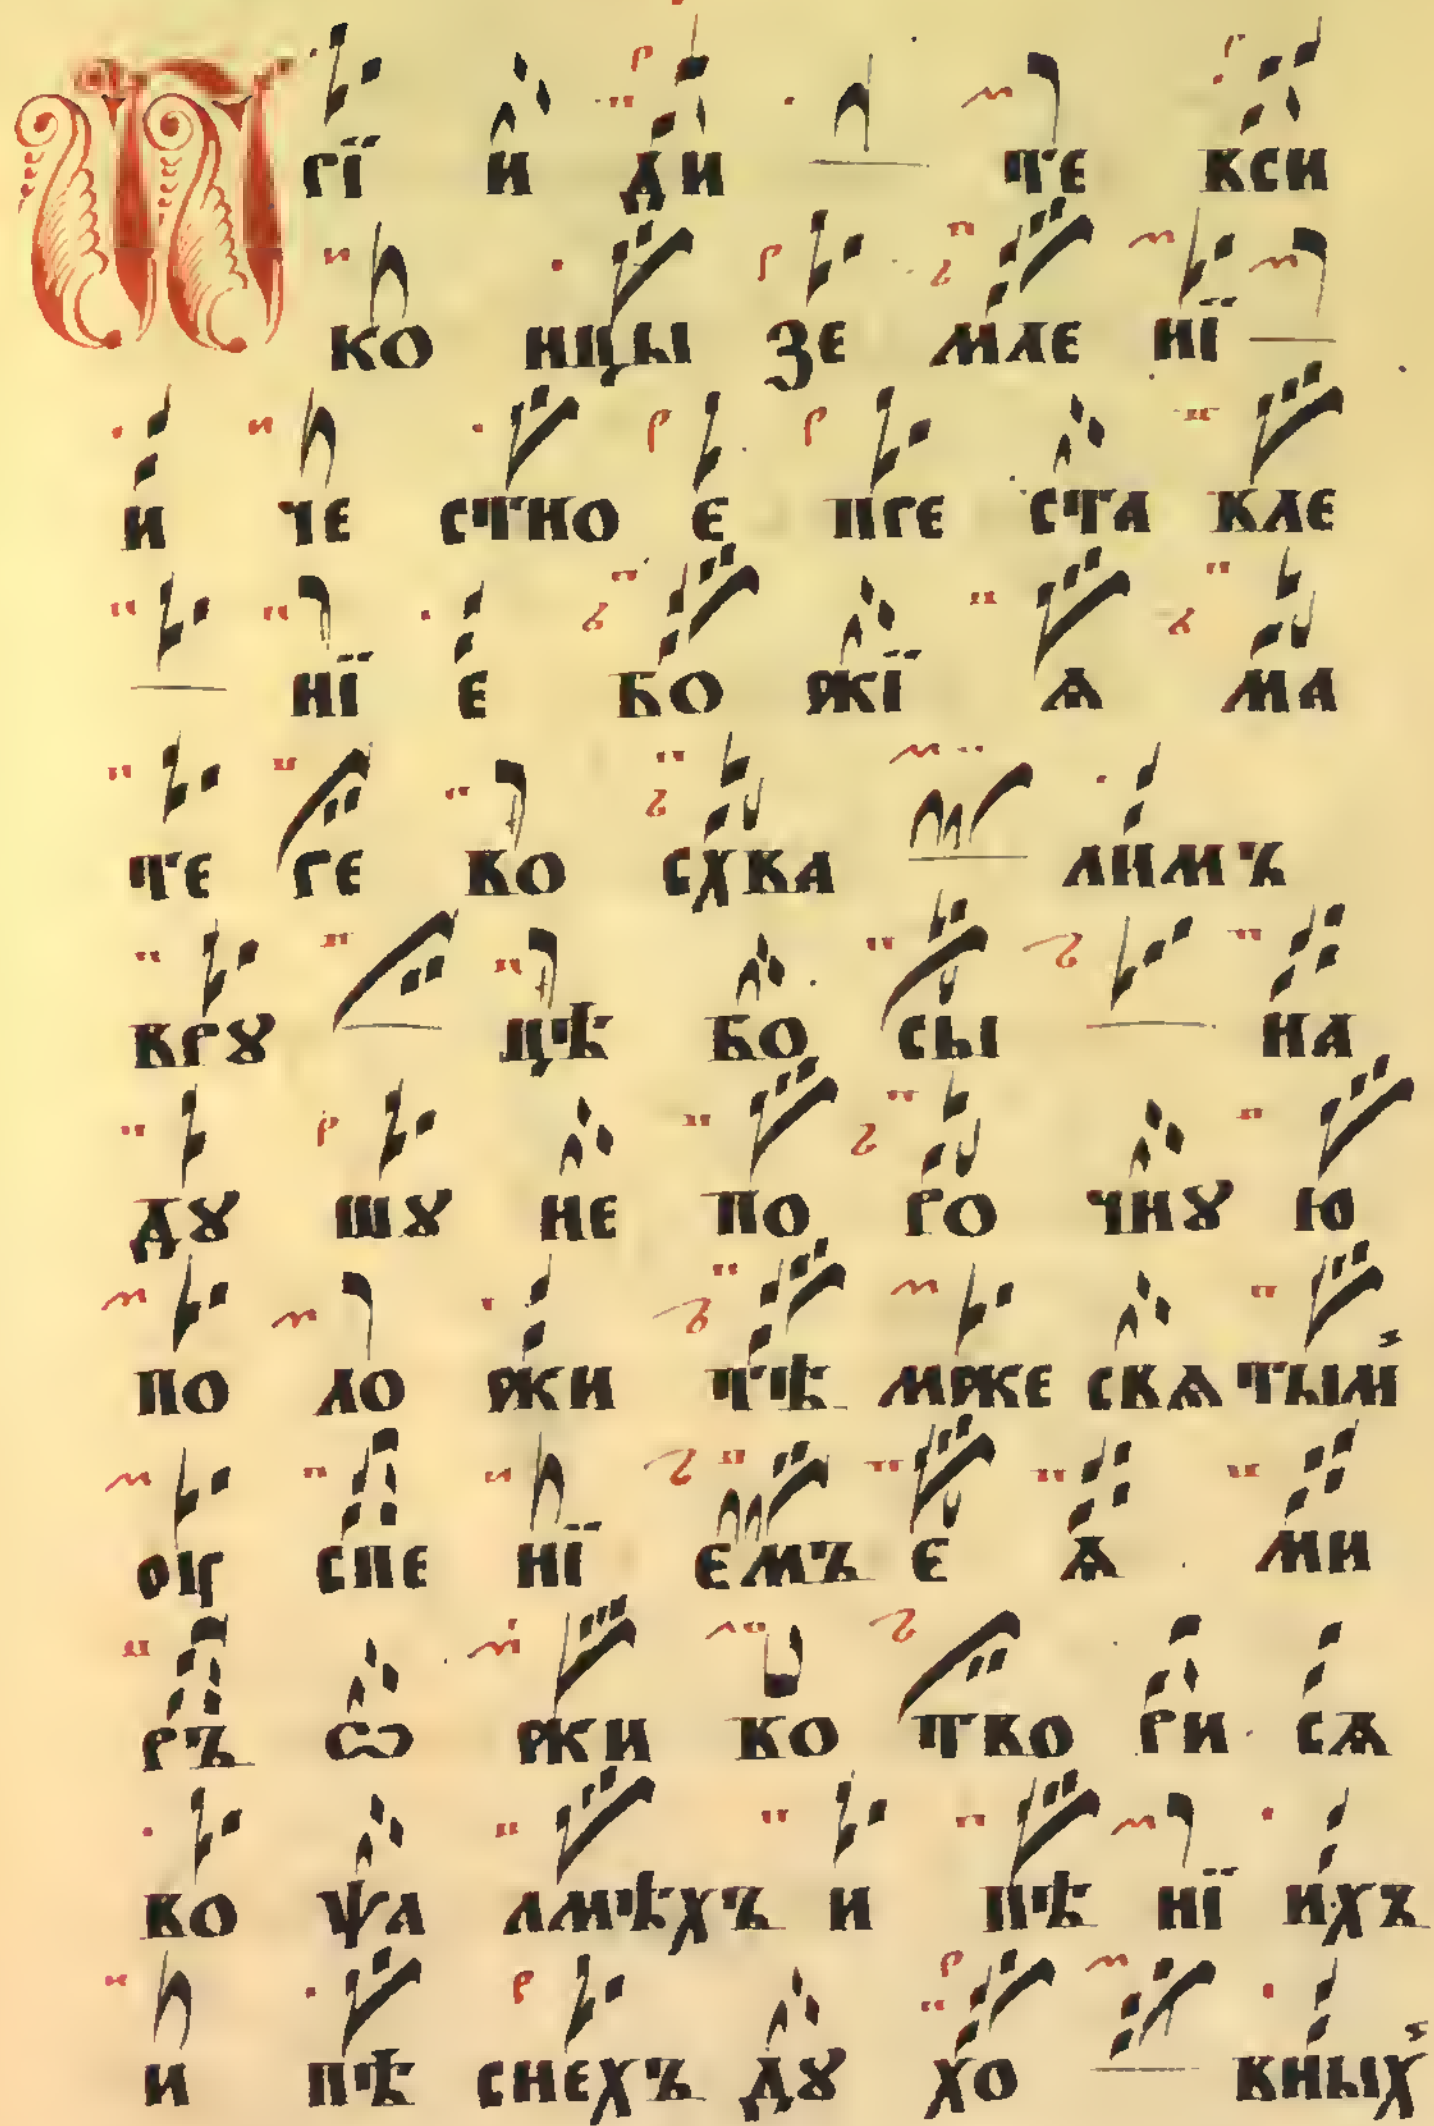 Прїидите вси
концы земленїи
и честное преставле
нїе Божїѧ Ма
тере восхвалимъ
в руцѣ бо Сына
душу непорочную
положи тѣмже свѧтым̾
оуспенїемъ еѧ ми
ръ ѡживотворисѧ
во ѱалмѣхъ и пѣнїихъ
и пѣснехъ духовных̾